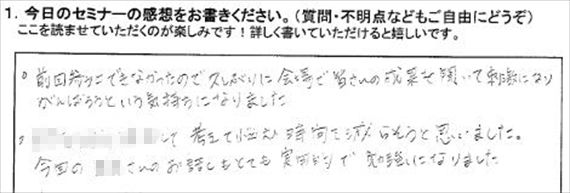 1. 今日のセミナーの感想をお書きください。（質問・不明点などもご自由にどうぞ）
ここを読ませていただくのが楽しみです！詳しく書いていただけると嬉しいです。
○ 前回参加できなかったので久しぶりに会場で皆さんの成果を聞いて刺激になり
がんばろうという気持ちになりました
○ して 考えて悩む時間を減らそうと思いました。
今回の さんのお話しもとても 勉強になりました